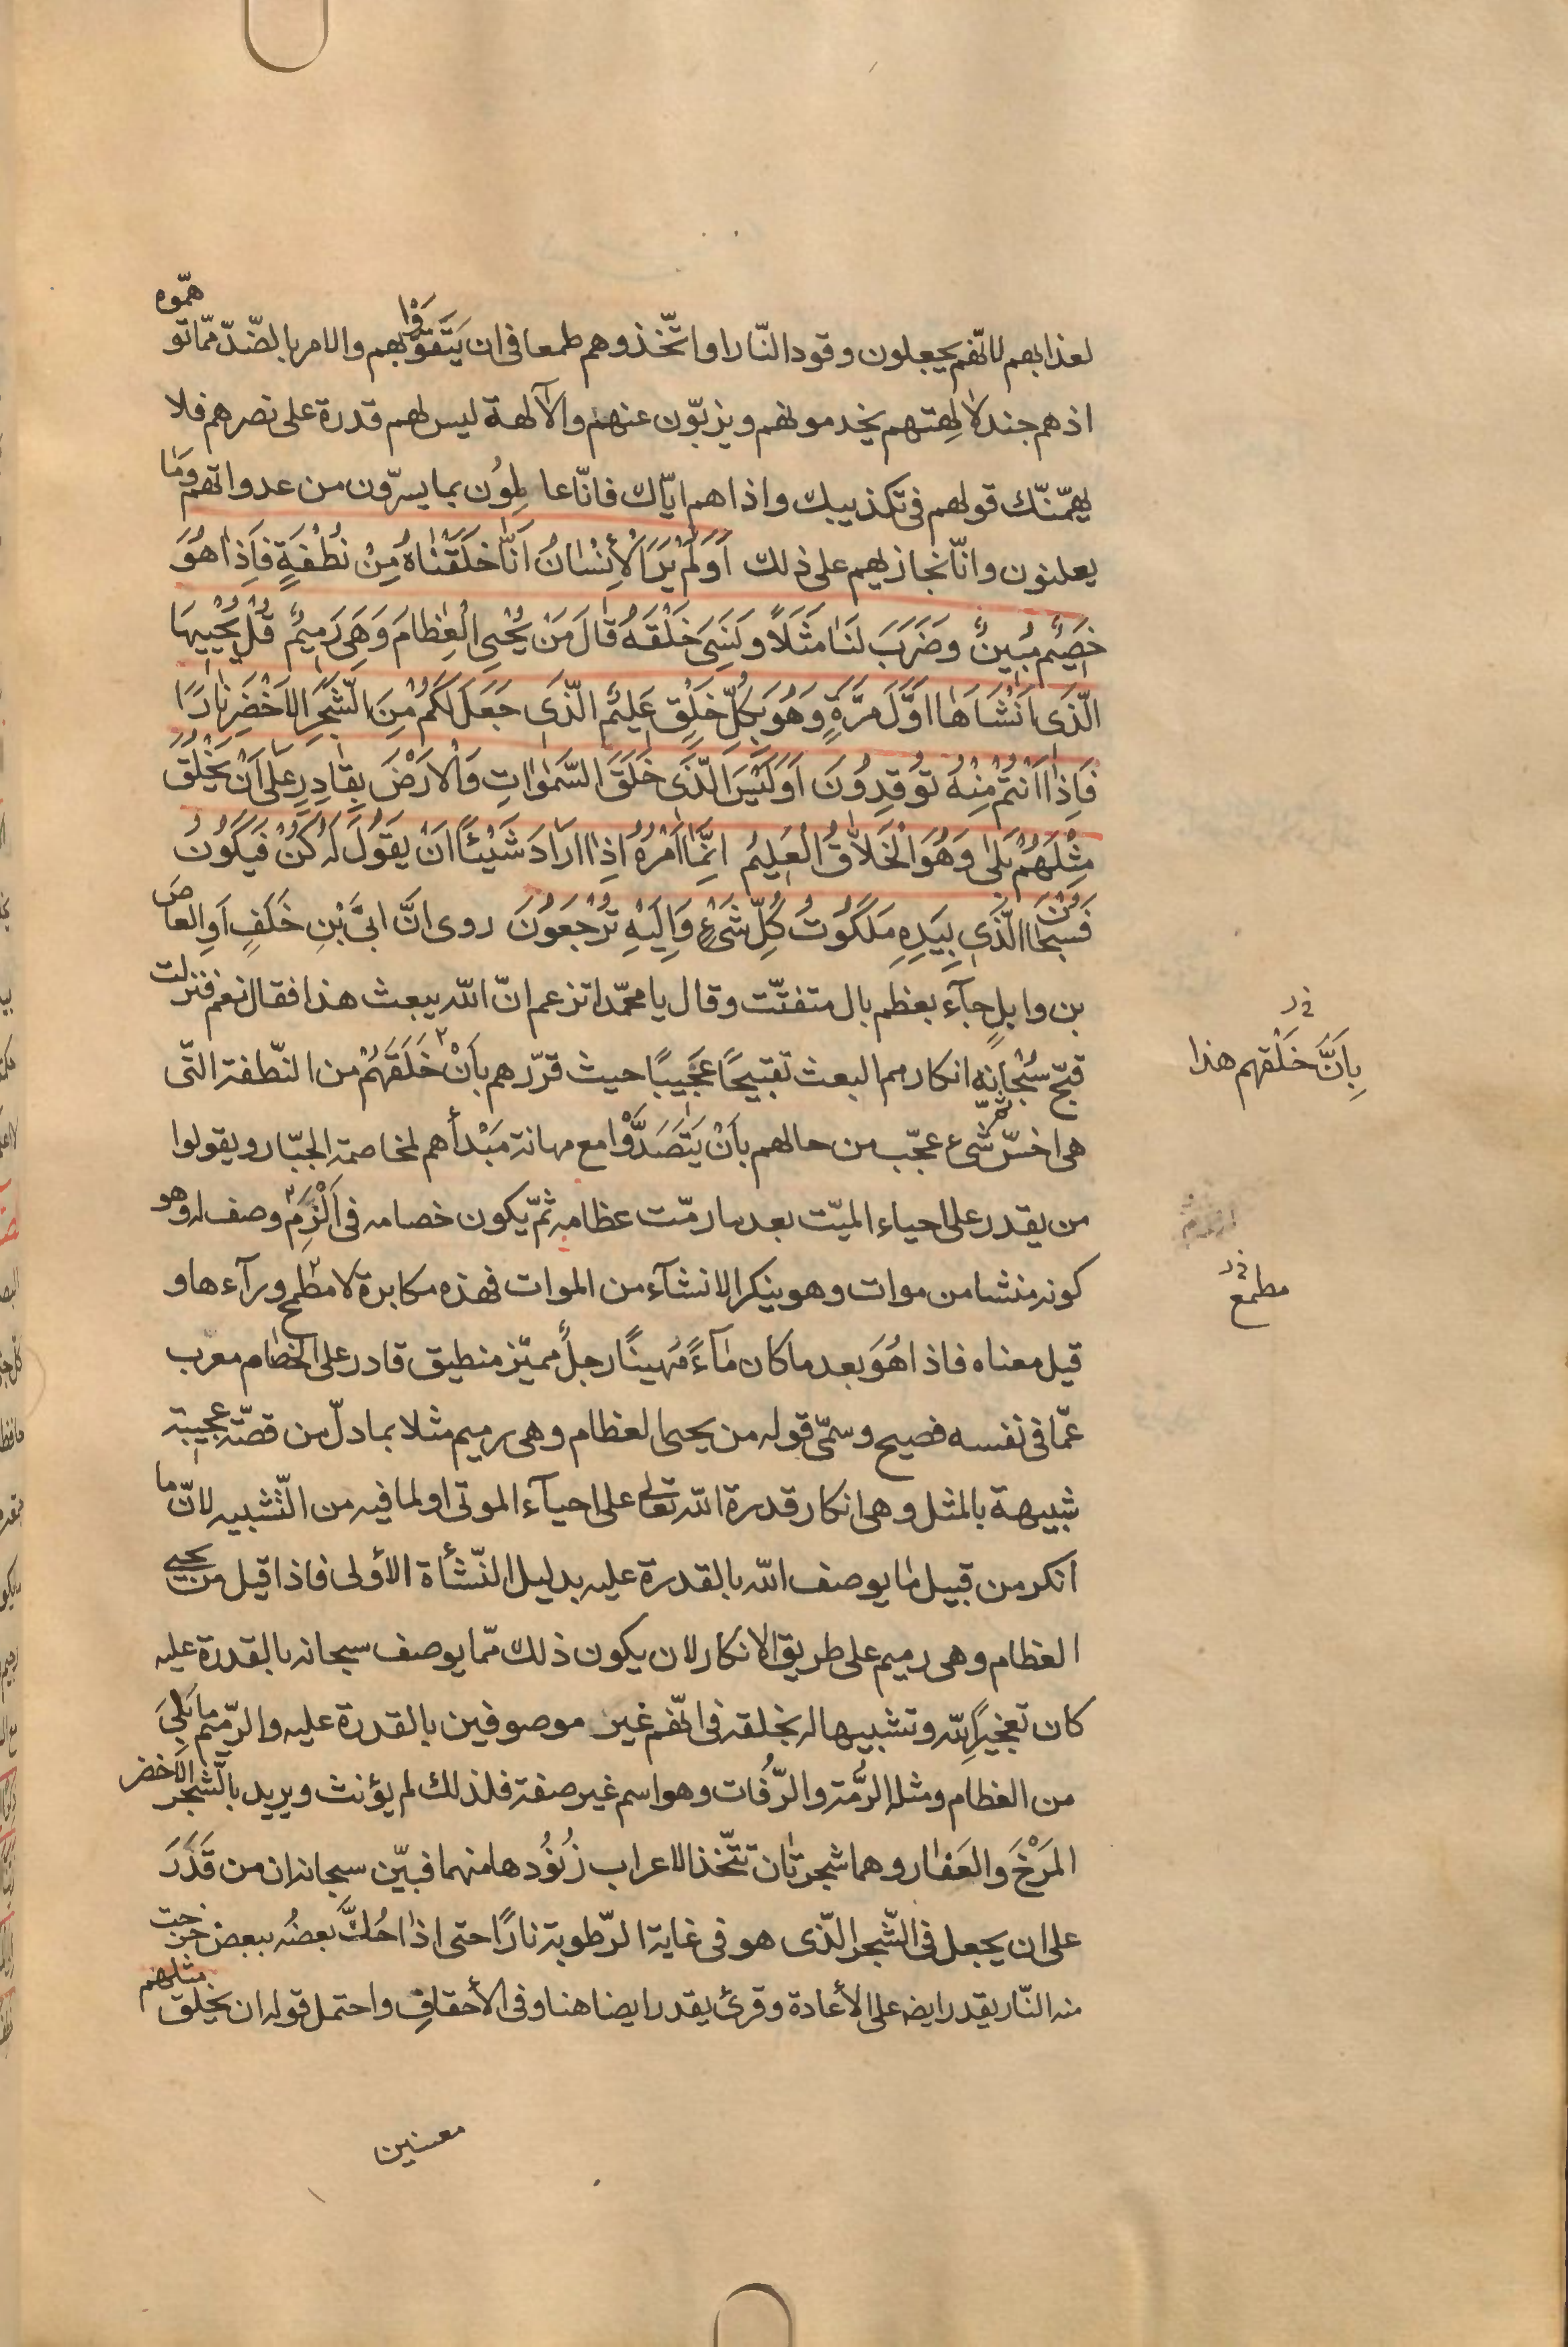 لعذابهم لانّهم يجعلون وقود النّار او اتّخذوهم طمعا فى ان يَتَقَوَّوْا بهم والامر بالضّدّ ممّا توهّموه
اذ هم جند لالهتهم يخدمونهم ويذبّون عنهم والآلهة ليس لهم قدرة على نصرهم فلا
يهمّنّك قولهم فى تكذيبك واذاهم ايّاك فانّا عالِمُون بما يسرّون من عدواتهم وما
يعلنون وانّا نجازيهم على ذلك اَوَلَمْ يَرَ الْأِنْسٰانُ اَنّٰا خَلَقْنٰاهُ مِنْ نُطْفَةٍ فَاِذٰا هُوَ
خَصِيٌم مُبينٌ وضَرَبَ لَنٰا مَثَلًا ونَسِىَ خَلْقَهُ قٰالَ مَنْ يُحْىِ الْعِظٰامَ وَهِىَ رَمِيٌم قُلْ يُحْيِيهَا
الّذَى اَنْشَاَهٰا اوّلَ مَرَّةٍ وَهُوَ بِكُلّ خَلْقٍ عَلِيٌم الّذَى جَعَلَ لَكُمْ مِنَ الشّجَرِ الاَخْضَرِ نٰارًا
فَاِذٰا اَنْتُمْ مِنْهُ تُوقِدُونَ اَوَلَيْسَ الّذَى خَلَقَ السَّمٰوٰاتِ وَالْارَضَ بِقٰادِرٍ عَلى اَنْ يَخْلُقَ
مِثْلَهُمْ بَلىٰ وَهُوَ الْخَلاّٰقُ الْعَلِيُم انَّمٰا اَمْرُهُ اِذٰا ارَٰادَ شَيْئًا اَنْ يقَوُلَ لَهُ كُنْ فَيَكوُن
فَسُبْحٰانَ الّذَى بِيَدِهِ مَلَكوُتُ كُلِّ شَىْءٍ وَاِلَيْهِ تُرْجَعوُنَ روى انَّ ابىَّ بْنِ خَلَفٍ اَوِ العاصَ
بن وايلٍ جآء بعظم بال متفتّت وقال يا محمّد اتزعم انّ اللّه يبعث هذا فقال نعم فنزلت
قبّح سُبْحانه انكارهم البعث تقبيحًا عَجَيبًا حيث قرّرهم بأنْ خَلَقَهُمْ من النّطفة الّتى
بِاَنَّ خَلْقهم هذا
هى اخسّ شىء ثمّ عجّب من حالهم بأنْ يَتَصَدَّوْا مع مهانة مَبْدأهم لمخاصمة الجبّار ويقولوا
من يقدر على احياء الميّت بعد ما رمّت عظامه ثمّ يكون خصامه فى اَلْزَمِ وصف له وهو
كونه منشا من موات وهو ينكر الانشآء من الموات فهذه مكابرة لا مطمح ورآءها و
مطمع
قيل معناه فاذا هُوَ بعد ما كان مٰآءً مَهينًا رجلٌ مميّز منطيق قادر على الخصٰام معرب
عمّا فى نفسه فصيح وسمّى قوله من يحيى العظام وهى رميم مثلا بما دلّ من قصّة عجيبة
شبيهة بالمثل وهى انكار قدرة اللّه تعالى على احيآء الموتى او لما فيه من التّشبيه لانّ ما
انكر من قبيل مٰا يوصف اللّه بالقدرة عليه بدليل النّشأة الأولى فاذا قيل من يحيى
العظام وهى رميم على طريق الانكار لان يكون ذلك ممّا يوصف سبحانه بالقدرة عليه
كان تعجيزًا للّه وتشبيها له بخلقه فى انّهم غير موصوفين بالقدرة عليه والرّميم ما بَلِىَ
من العظام ومثله الرّمّة والرّفُات وهو اسم غير صفة فلذلك لم يؤنث ويريد بالشّجر الاَخضر
المَرْخَ والعَفٰار وهما شجرتٰان تتّخذ الاعراب زُنوُدها منهما فبيّن سبحانه ان من قَدَرَ
على ان يجعل فى الشّجر الّذى هو فى غاية الرّطوبة نارًا حتى اذٰا حُكَّ بعضُه ببعض خرجت
منه النّار يقدر ايضه على الأعادة وقرئ يقدر ايضا هنا وفى الأحقافِ واحتمل قوله ان يخلق مثلهم
معنيين